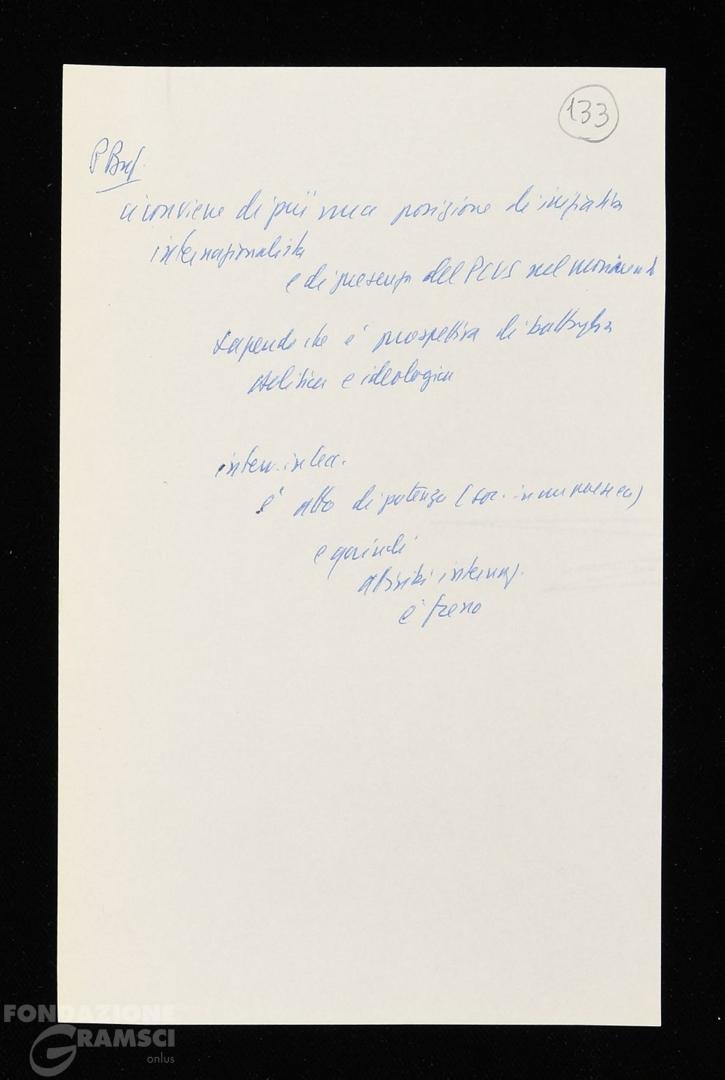 133
P Buf.
ci conviene di più una posizione di iniziativa
internazionalista
e di presenza del PCUS nel movimento
sapendo che è prospettiva di battaglia
politica e ideologica
è atto di potenza (soc. in un paese)
e quindi
internaz.
è freno
FONDAZIONE
GRAMSCI
onlus